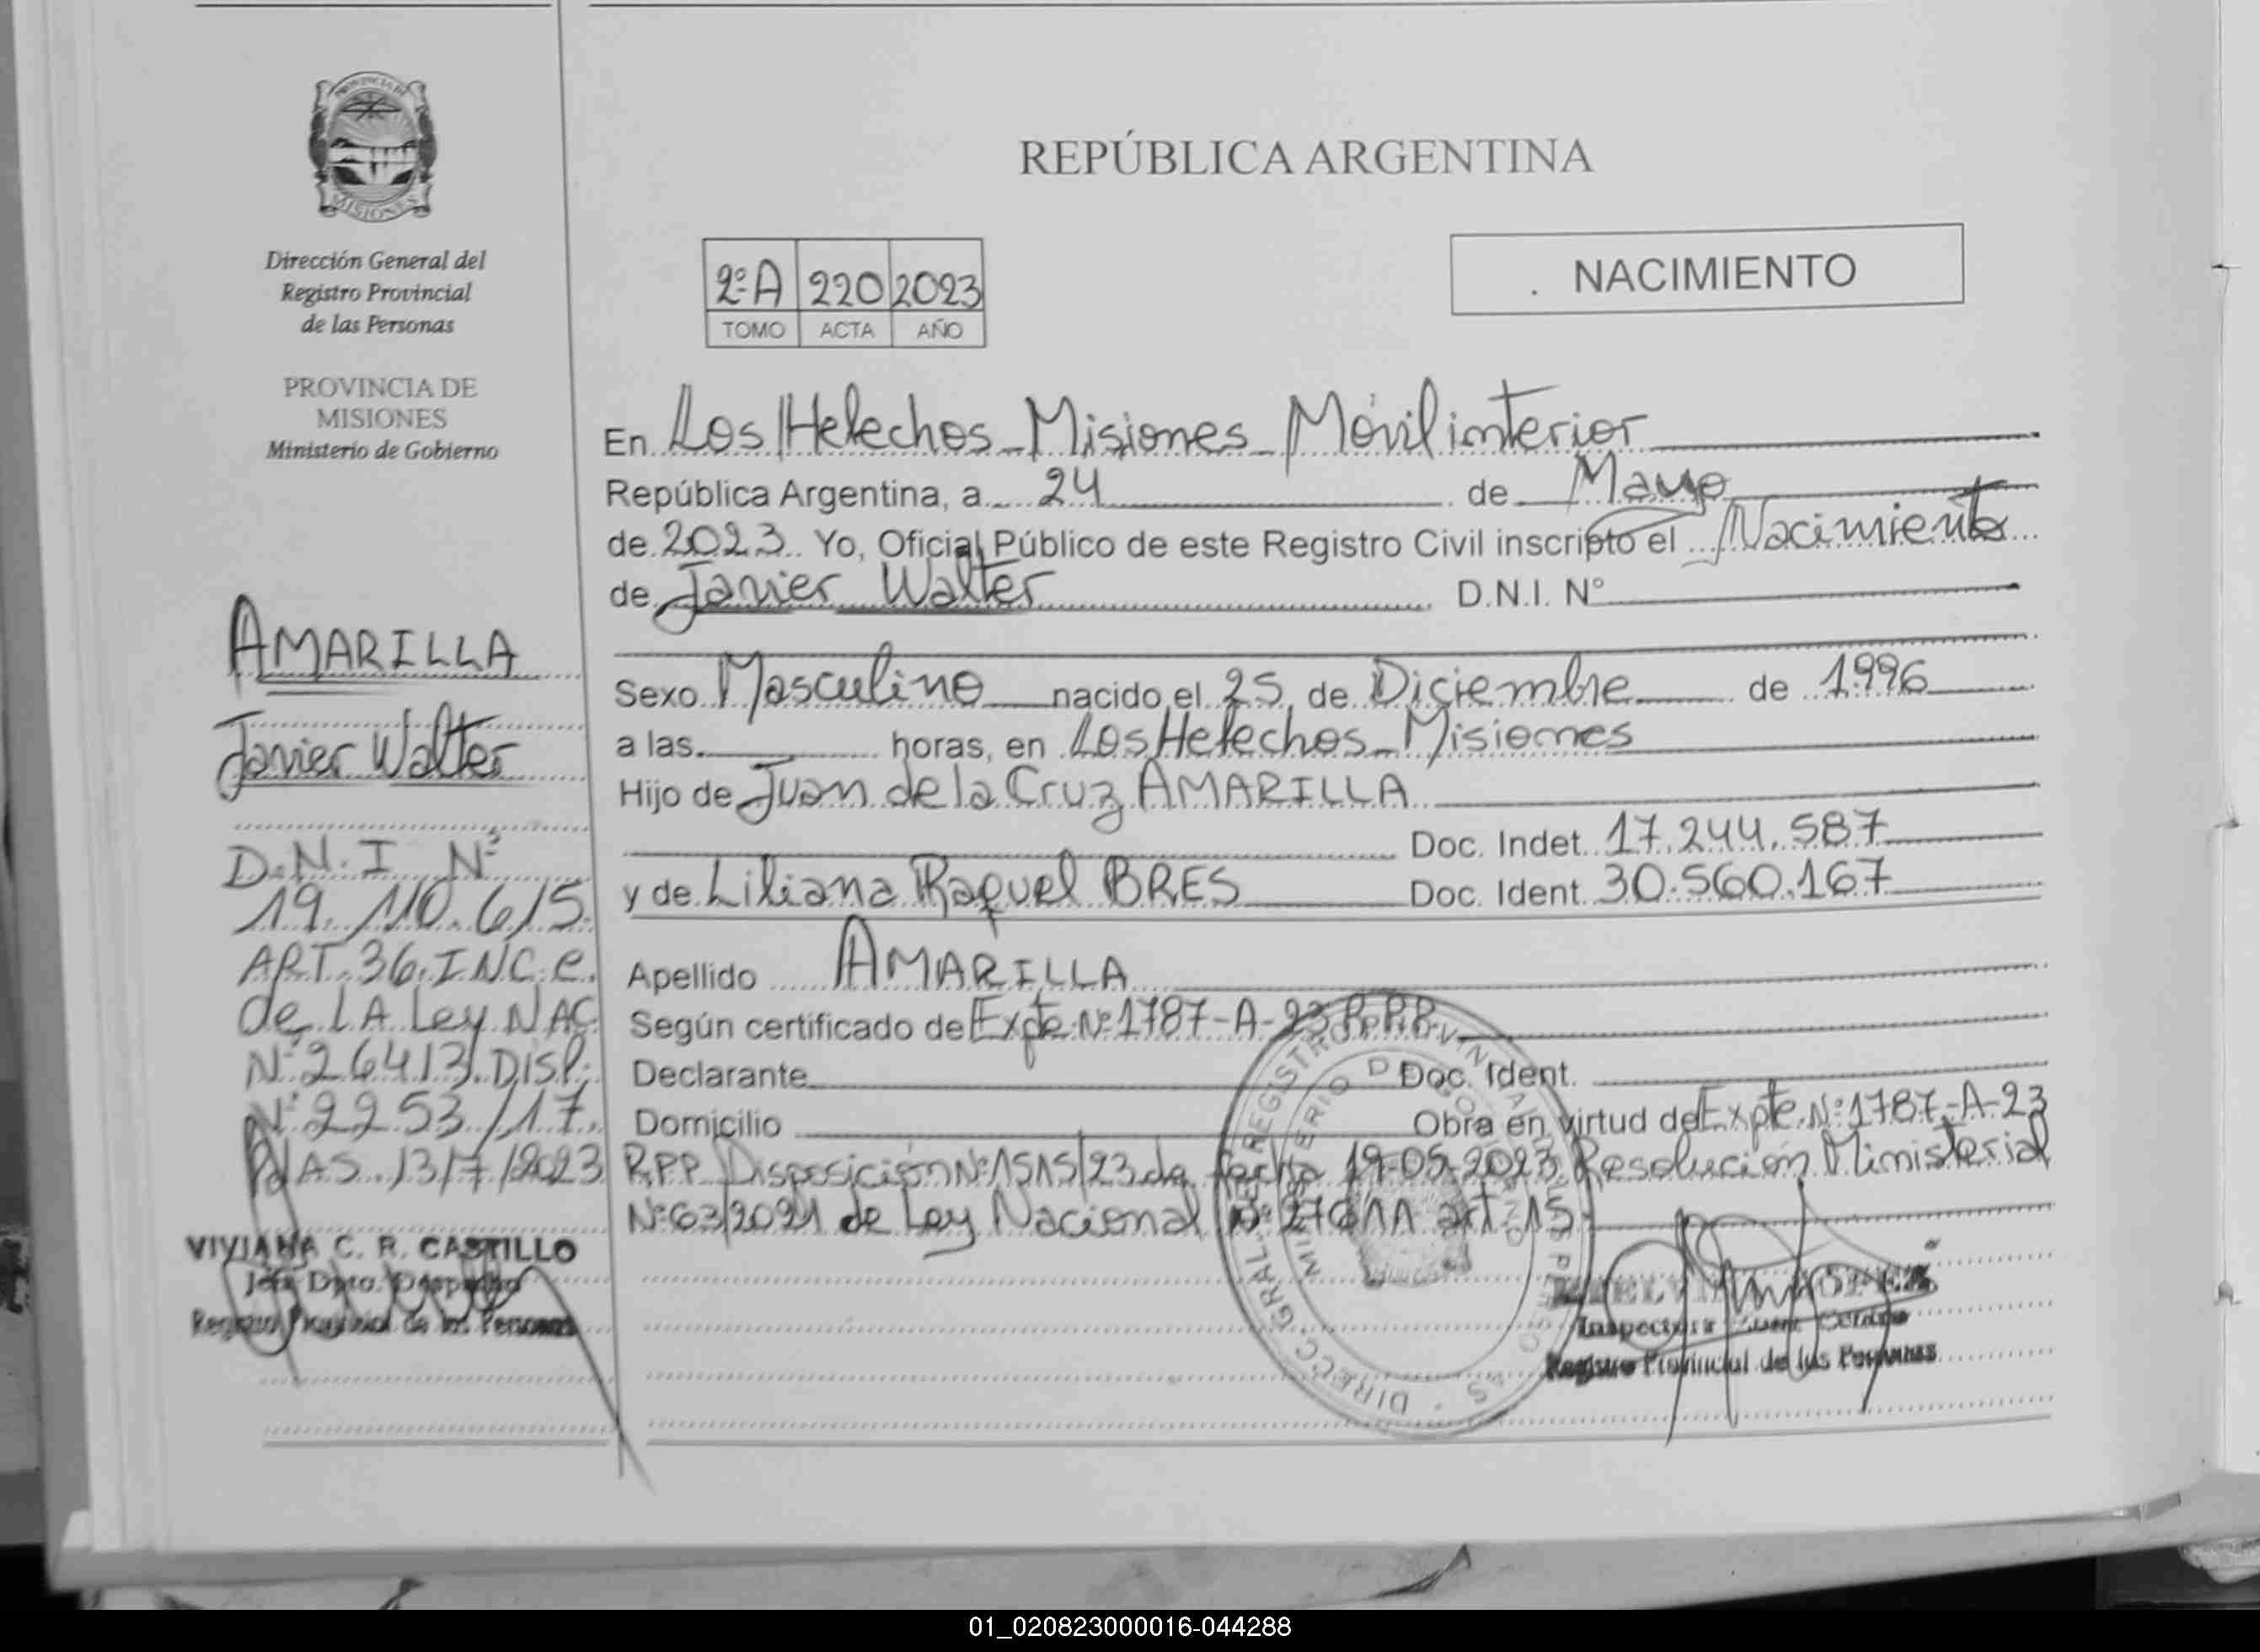 PROVINCIA DE
MISIONES
Dirección General del
Registro Provincial
de las Personas
PROVINCIA DE
MISIONES
Ministerio de Gobierno
AMARILLA
Javier Walter
D.N.I Nº
19.110.615.
ART.36.INC.e.
de LA Ley NAC
Nº26413.Disp.
Nº2253/17.
PdAS.13/7/2023
VIVIANA C. R. CASTILLO
Jefa Dpto. Despacho
Registro Provincial de las Personas
REPÚBLICA ARGENTINA
2ºA 220 2023
TOMO ACTA AÑO
NACIMIENTO
En Los Helechos - Misiones - Móvil interior
República Argentina, a 24 de Mayo
de 2023 Yo, Oficial Público de este Registro Civil inscripto el Nacimiento
de Javier Walter D.N.I. Nº
Sexo Masculino nacido el 25 de Diciembre de 1996
a las horas, en Los Helechos - Misiones
Hijo de Juan de la Cruz AMARILLA
Doc. Indet. 17.244.587
y de Liliana Raquel BRES Doc. Ident. 30.560.167
Apellido AMARILLA
Según certificado de Expte.Nº1787-A-23 R.P.P.
Declarante Doc. Ident.
Domicilio Obra en virtud de Expte.Nº1787-A-23
R.P.P. Disposición Nº1515/23 de fecha 19-05-2023 Resolución Ministerial
Nº63/2021 de Ley Nacional Nº27611 art.15
Inspectora
Registro Provincial de las Personas
01_020823000016-044288